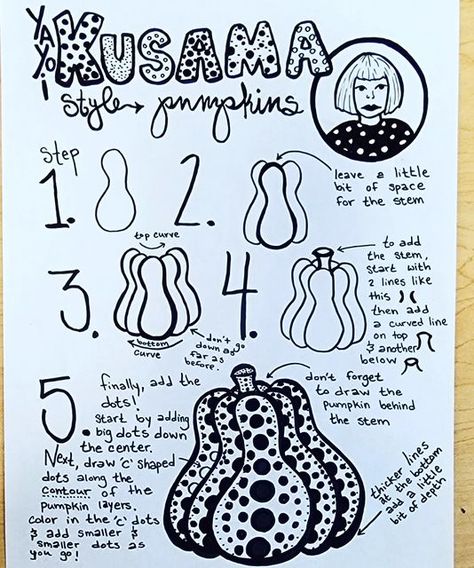 YAYOI
KUSAMA
Style → pumpkins
Step
1.
2.
leave a little
bit of space
for the stem
3.
top curve
bottom
curve
don't go
down as
far as
before.
4.
to add
the stem,
start with
2 lines like
this )(
then add
a curved line
on top
& another
below
5.
finally, add the
dots!
start by adding
big dots down
the center.
Next, draw 'c' shaped
dots along the
contour of the
pumpkin layers.
color in the 'c' dots
& add smaller &
smaller dots as
you go!
don't forget
to draw the
pumpkin behind
the stem
thicker lines
at the bottom
add a little
bit of depth